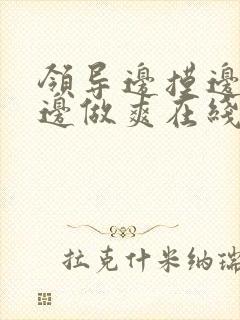 领导邊摸邊
邊做爽在綫
拉克什米纳瑞